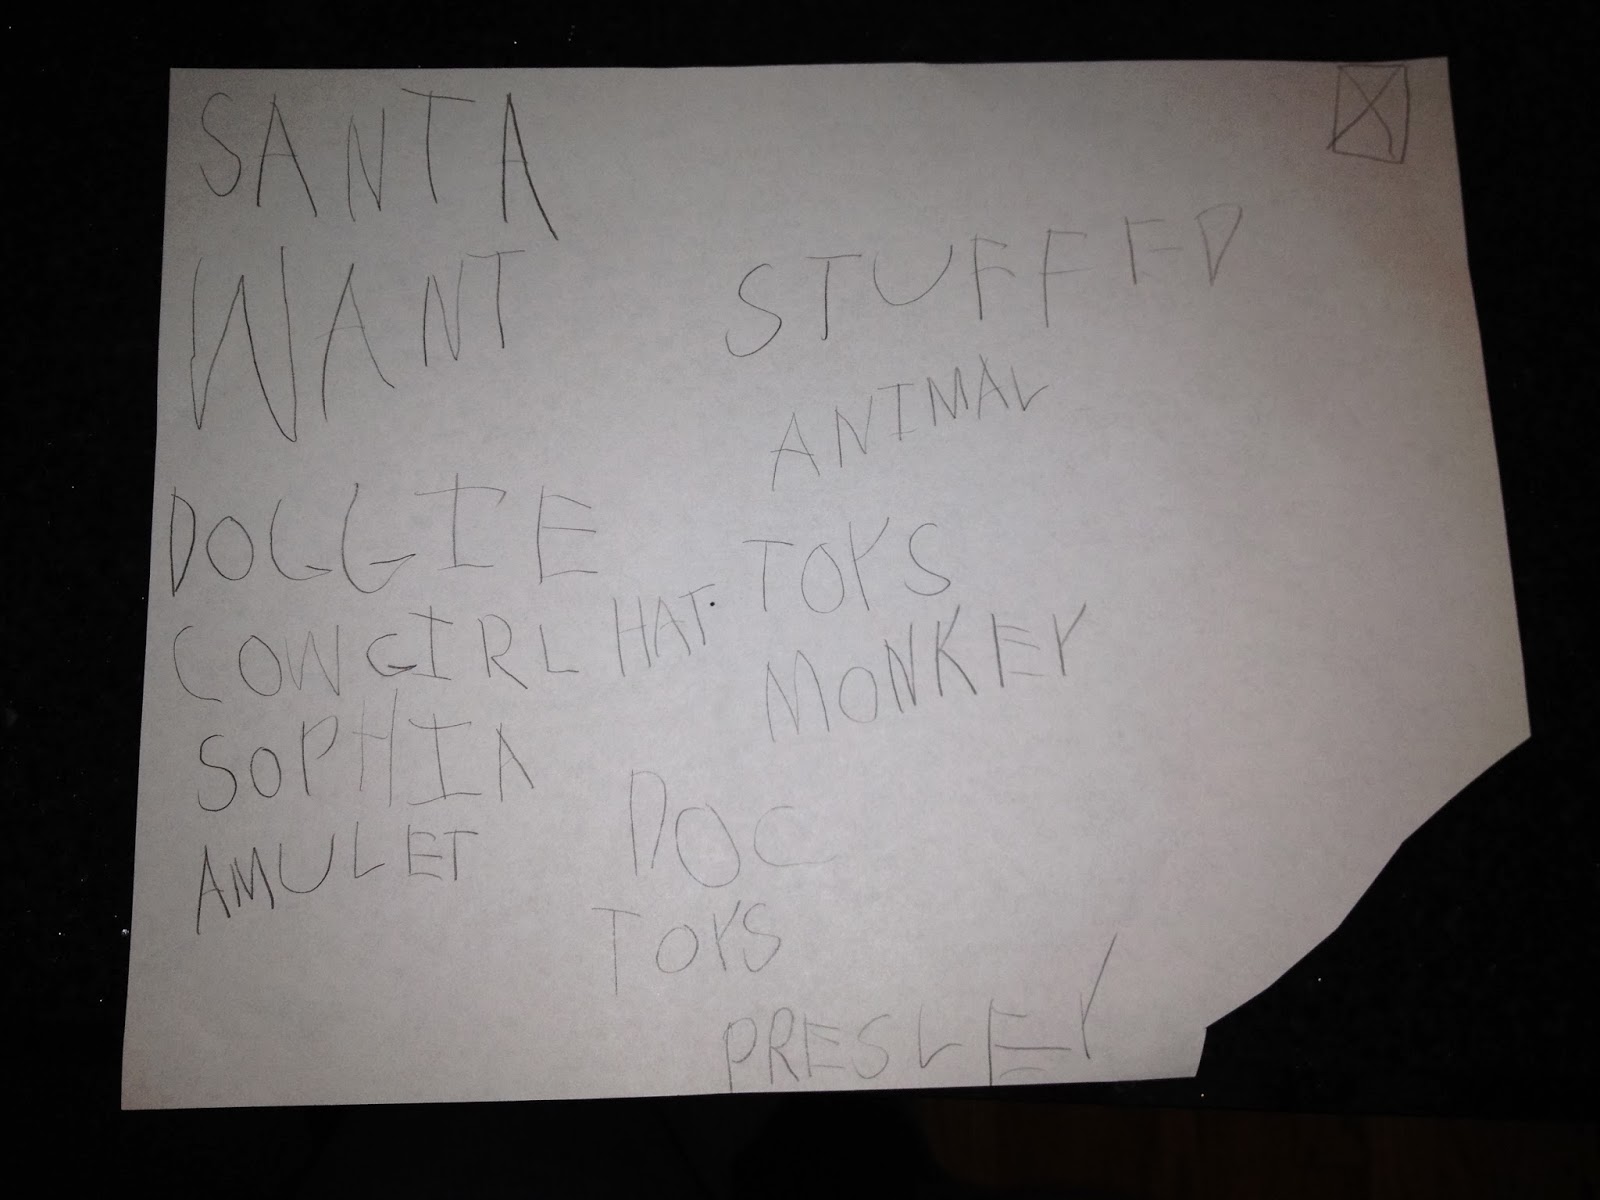 SANTA
WANT
DOGGIE
COWGIRL HAT.
SOPHIA
AMULET
STUFFED
ANIMAL
TOYS
MONKEY
DOC
TOYS
PRESLEY